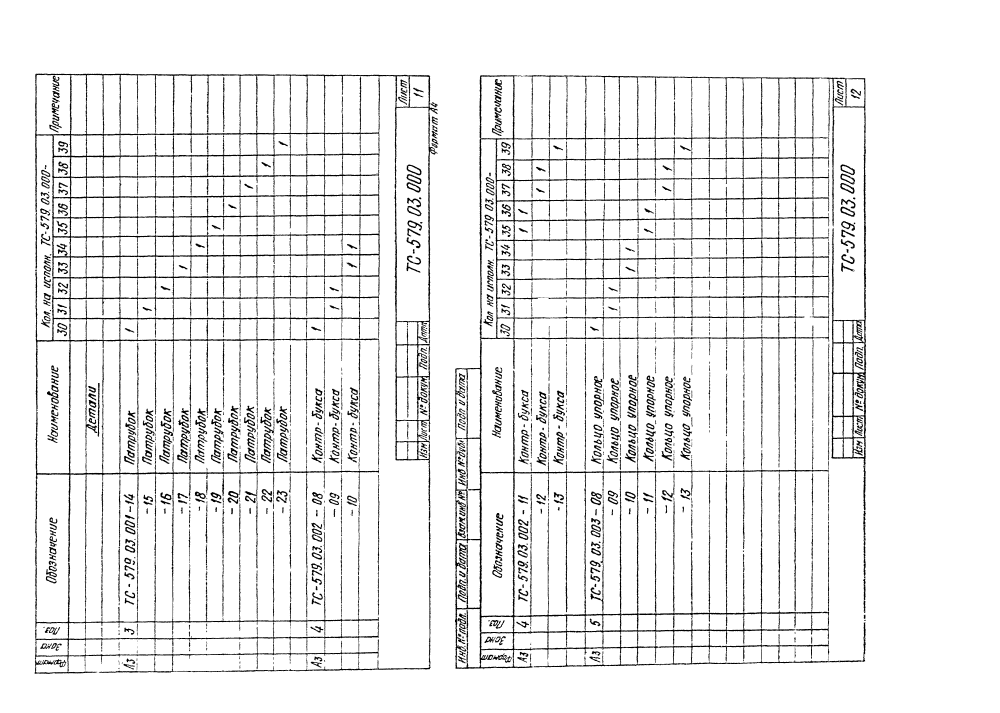 Формат Зона Поз. Обозначение Наименование Кол. на исполн. ТС-579.03.000- Примечание
30 31 32 33 34 35 36 37 38 39
Детали
А3 3 ТС-579.03.001-14 Патрубок 1
-15 Патрубок 1
-16 Патрубок 1
-17 Патрубок 1
-18 Патрубок 1
-19 Патрубок 1
-20 Патрубок 1
-21 Патрубок 1
-22 Патрубок 1
-23 Патрубок 1
А3 4 ТС-579.03.002-08 Контр-букса 1
-09 Контр-букса 1 1
-10 Контр-букса 1 1
Изм Лист № докум Подп. Дата
ТС-579.03.000
Лист
11
Формат А4
Инв.№ подл. Подп. и дата Взам инв № Инв № дубл Подп и дата
Формат Зона Поз. Обозначение Наименование Кол на исполн. ТС-579.03.000- Примечание
30 31 32 33 34 35 36 37 38 39
А3 4 ТС-579.03.002-11 Контр-букса 1 1
-12 Контр-букса 1 1
-13 Контр-букса 1
А3 5 ТС-579.03.003-08 Кольцо упорное 1
-09 Кольцо упорное 1 1
-10 Кольцо упорное 1 1
-11 Кольцо упорное 1 1
-12 Кольцо упорное 1 1
-13 Кольцо упорное 1
Изм Лист № докум Подп. Дата
ТС-579.03.000
Лист
12